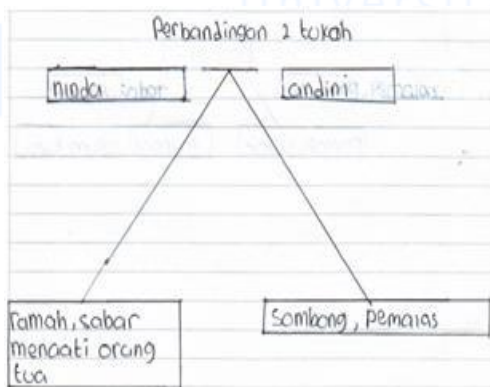 Perbandingan 2 tokoh
ninda
andini
ramah, sabar
menaati orang
tua
Sombong, pemalas